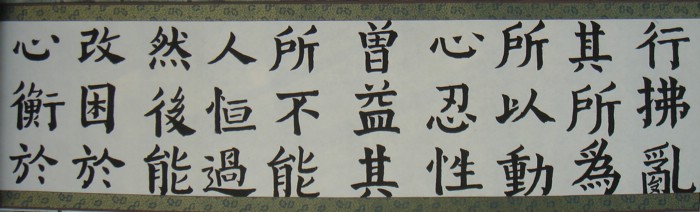 行拂亂
其所為
所以動
心忍性
曾益其
所不能
人恒過
然後能
改困於
心衡於